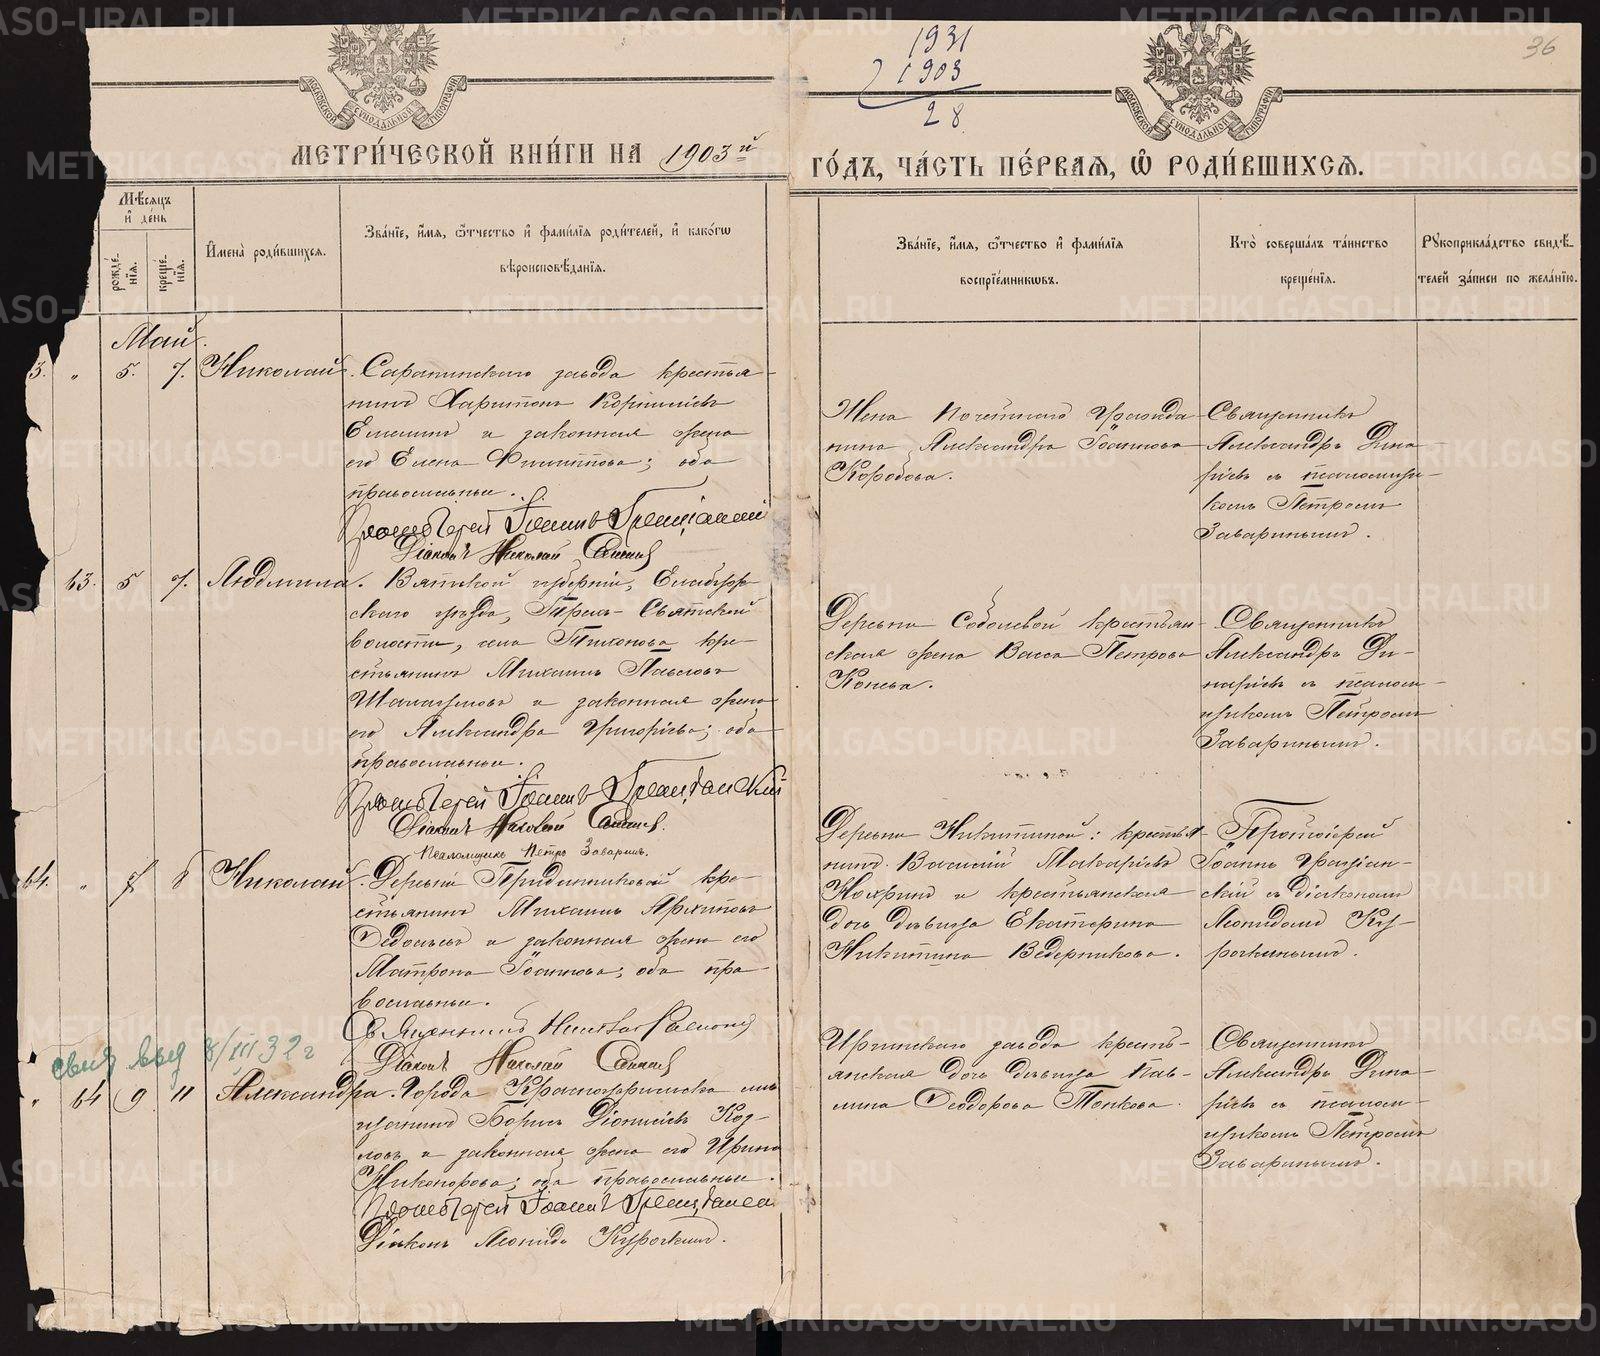 1931
1903
28
36
МОСКОВСКОЙ СѴНОДАЛЬНОЙ ТИПОГРАФІИ
МОСКОВСКОЙ СѴНОДАЛЬНОЙ ТИПОГРАФІИ
МЕТРИ́ЧЕСКОЙ КНИ́ГИ НА 1903 й
ГО́ДЪ, ЧА́СТЬ ПЕ́РВАЯ, Ѡ҆ РОДИ́ВШИХСЯ.
Мѣ́сяцъ
и҆ де́нь
рожде́-
нія.
креще́-
нія.
И҆мена̀ роди́вшихся.
Зва́ніе, и҆́мя, ѻ҆́тчество и҆ фами́лія роди́телей, и҆ како́гѡ
вѣроисповѣ́данія.
Зва́ніе, и҆́мя, ѻ҆́тчество и҆ фами́лія
воспріе́мникѡвъ.
Кто̀ соверша́лъ та́инство
креще́нія.
Рꙋкоприкла́дство свидѣ́-
телей за́писи по жела́нію.
Май.
3. „ 5. 7. Николай. Сарапинскаго завода крестья-
нинъ Харитонъ Корнилiевъ
и законная жена
его Елена Филиппова; оба
православные.
Протоіерей Іоаннъ Граціанскій
Діаконъ Николай
Жена Почетнаго Гражда-
нина Александра Іоаннова
Коробова.
Священникъ
Александръ Дина-
ріевъ съ псаломщи-
комъ Петромъ
Заваринымъ.
63. 5 7. Людмила. Вятской губерніи, Елабуж-
скаго уѣзда, Трехъ-Святской
волости, села Тихонова кре-
стьянинъ Михаилъ Павловъ
и законная жена
его Александра Григорьева; оба
православные.
Протоіерей Іоаннъ Граціанскій
Діаконъ Николай
Псаломщикъ Петръ Заваринъ.
Деревни Соболевой крестьян-
ская жена Васса Петрова
Конева.
Священникъ
Александръ Ди-
наріевъ съ псалом-
щикомъ Петромъ
Заваринымъ.
64. „ 7 8 Николай. Деревни Приданниковой кре-
стьянинъ Михаилъ Архиповъ
и законная жена его
Матрона Іоаннова; оба пра-
вославные.
Священникъ
Діаконъ Николай
Деревни Никитиной: крестья-
нинъ Василій Макаріевъ
и крестьянская
дочь дѣвица Екатерина
Никитина Ведерникова.
Протоіерей
Іоаннъ Граціан-
скій съ діакономъ
Леонидомъ Ку-
рочкинымъ.
свид выд 8/III 32 г
„ 64 9 11 Александра. Города Красноуфимска мѣ-
щанинъ Борисъ Діонисіевъ Коз-
ловъ и законная жена его Ирина
Никонорова; оба православные.
Протоіерей Іоаннъ Граціанскій
Діаконъ Леонидъ Курочкинъ.
Иргинскаго завода кресть-
янская дочь дѣвица Пав-
лина Ѳеодорова Попкова.
Священникъ
Александръ Дина-
ріевъ съ псалом-
щикомъ Петромъ
Заваринымъ.
METRIKI.GASO-URAL.RU